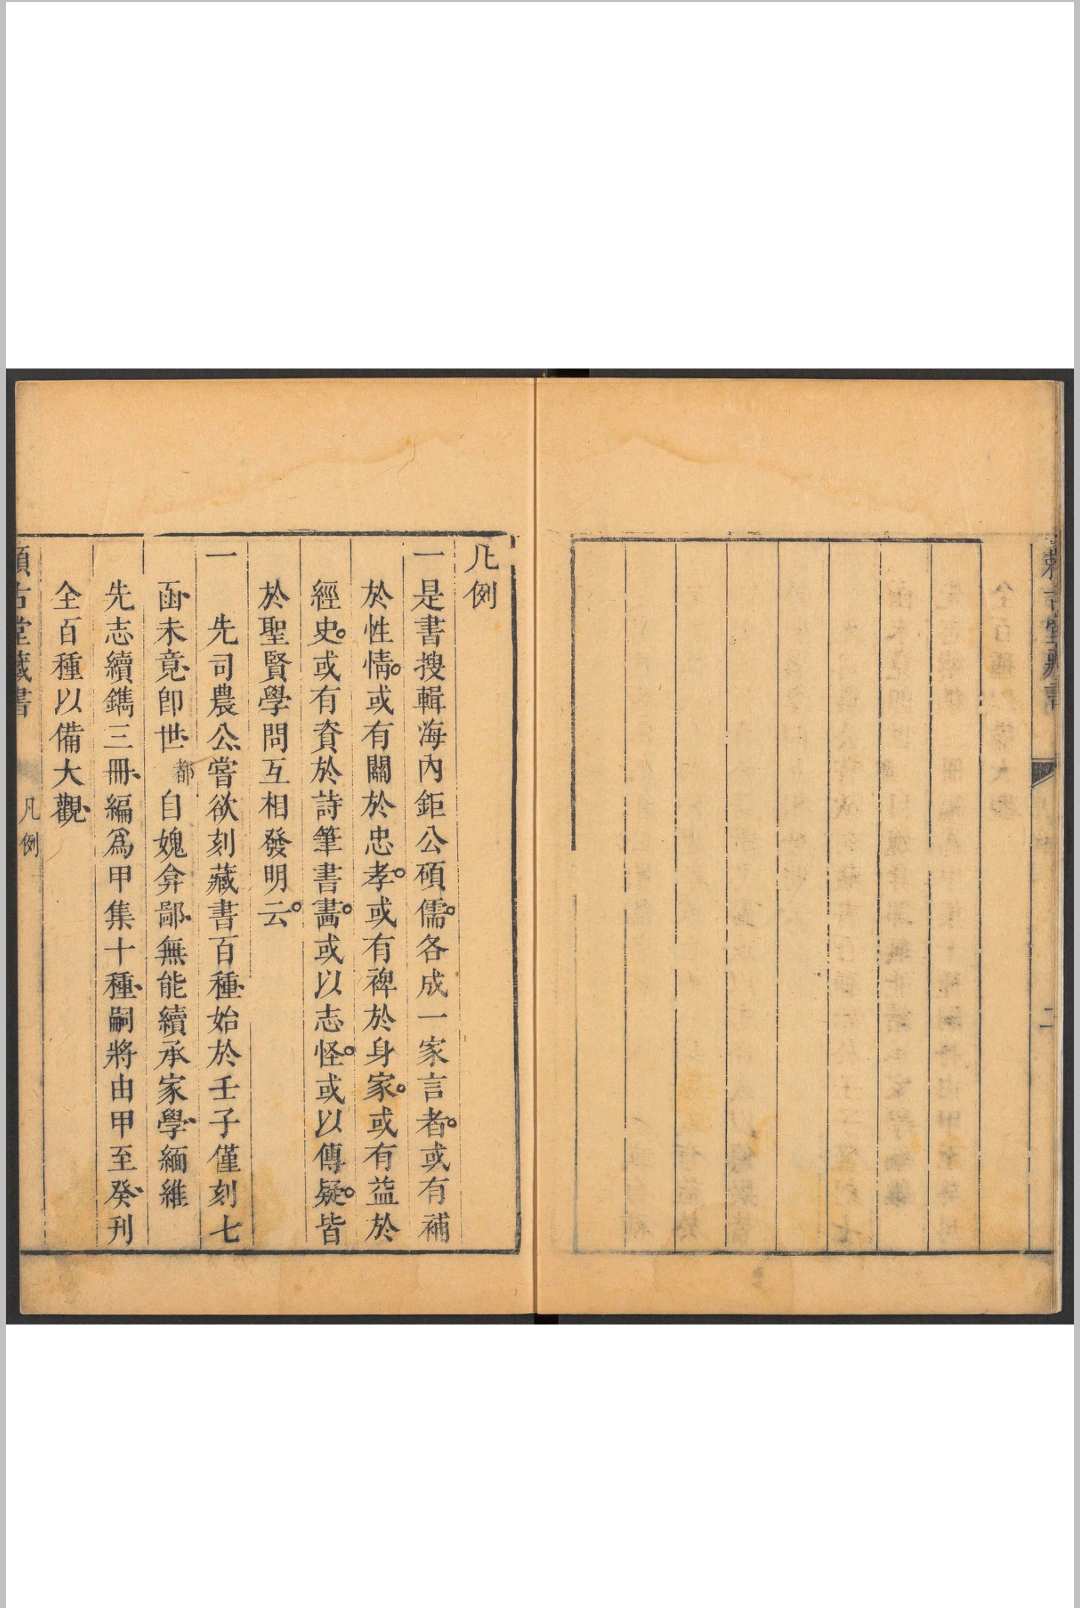 賴古堂藏書
二
凡例
一是書搜輯海內鉅公碩儒各成一家言者或有補
於性情或有關於忠孝或有裨於身家或有益於
經史或有資於詩筆書畫或以志怪或以傳疑皆
於聖賢學問互相發明云
一　先司農公嘗欲刻藏書百種始於壬子僅刻七
函未竟卽世都自媿弇鄙無能續承家學緬維
先志續鐫三冊編爲甲集十種嗣將由甲至癸刋
全百種以備大觀
賴古堂藏書　凡例